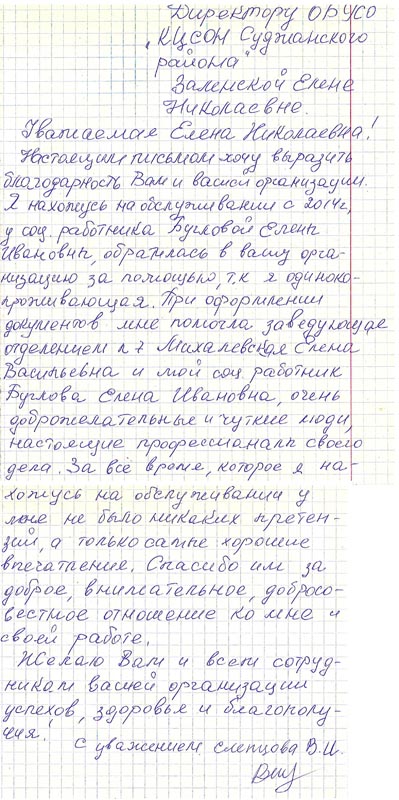 Директору ОБУСО
"КЦСОН Суджанского
района"
Заленской Елене
Николаевне.
Уважаемая Елена Николаевна!
Настоящим письмом хочу выразить
благодарность Вам и вашей организации.
Я нахожусь на обслуживании с 2014г,
у соц. работника Бугловой Елены
Ивановны, обратилась в вашу орга-
низацию за помощью, т.к я одиноко-
проживающая. При оформлении
документов мне помогла заведующая
отделением n 7 Михалевская Елена
Васильевна и мой соц работник
Буглова Елена Ивановна, очень
доброжелательные и чуткие люди,
настоящие профессионалы своего
дела. За всё время, которое я на-
хожусь на обслуживании у
меня не было никаких претен-
зий, а только самые хорошие
впечатления. Спасибо им за
доброе, внимательное, добросо-
вестное отношение ко мне и
своей работе.
Желаю Вам и всем сотруд-
никам вашей организации
успехов, здоровья и благополу-
чия!
С уважением Слепцова В.И.